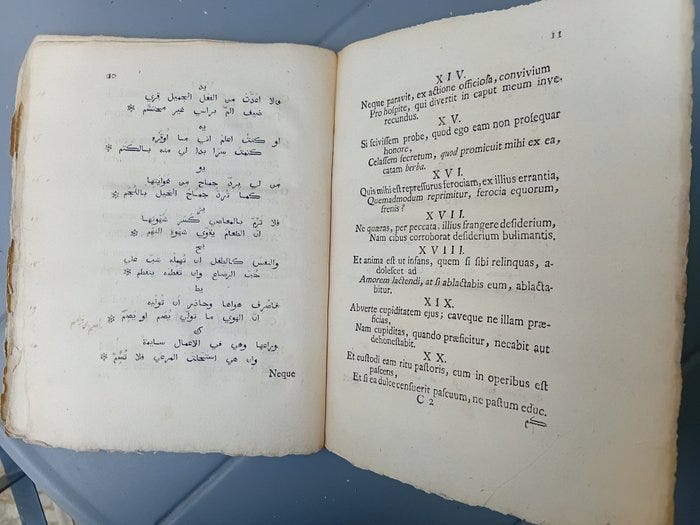 10
يد
ولا اعدّت من الفعل الجميل قري
ضيف المّ براسي غير محتشم *
يه
لو كنت اعلم اني ما اوقّره
كتمت سرا بدا لي منه بالكتم *
يو
من لي بردّ جماح من غوايتها
كما يردّ جماح الخيل باللجم *
يز
فلا ترم بالمعاصي كسر شهوتها
ان الطعام يقوي شهوة النهم *
يح
والنفس كالطفل ان تهمله شب علي
حب الرضاع وان تفطمه ينفطم *
يط
فاصرف هواها وحاذر ان توليه
ان الهوي ما تولي يصم او يصم *
ك
وراعها وهي في الاعمال سايمة
وان هي استحلت المرعي فلا تسم *
Neque
11
XIV.
Neque paravit, ex actione officiosa, convivium
Pro hospite, qui divertit in caput meum inve-
recundus.
XV.
Si scivissem probe, quod ego eam non prosequar
honore,
Celassem secretum, quod promicuit mihi ex ea,
catam herba.
XVI.
Quis mihi est repressurus ferociam, ex illius errantia,
Quemadmodum reprimitur, ferocia equorum,
frenis?
XVII.
Ne quæras, per peccata, illius frangere desiderium,
Nam cibus corroborat desiderium bulimantis.
XVIII.
Et anima est ut infans, quem si sibi relinquas, a-
dolescet ad
Amorem lactendi, at si ablactabis eum, ablacta-
bitur.
XIX.
Adverte cupiditatem ejus; caveque ne illam præ-
ficias,
Nam cupiditas, quando præficitur, necabit aut
dehonestabit.
XX.
Et custodi eam ritu pastoris, cum in operibus est
pascens,
Et si ea dulce censuerit pascuum, ne pastum educ.
C 2
كم